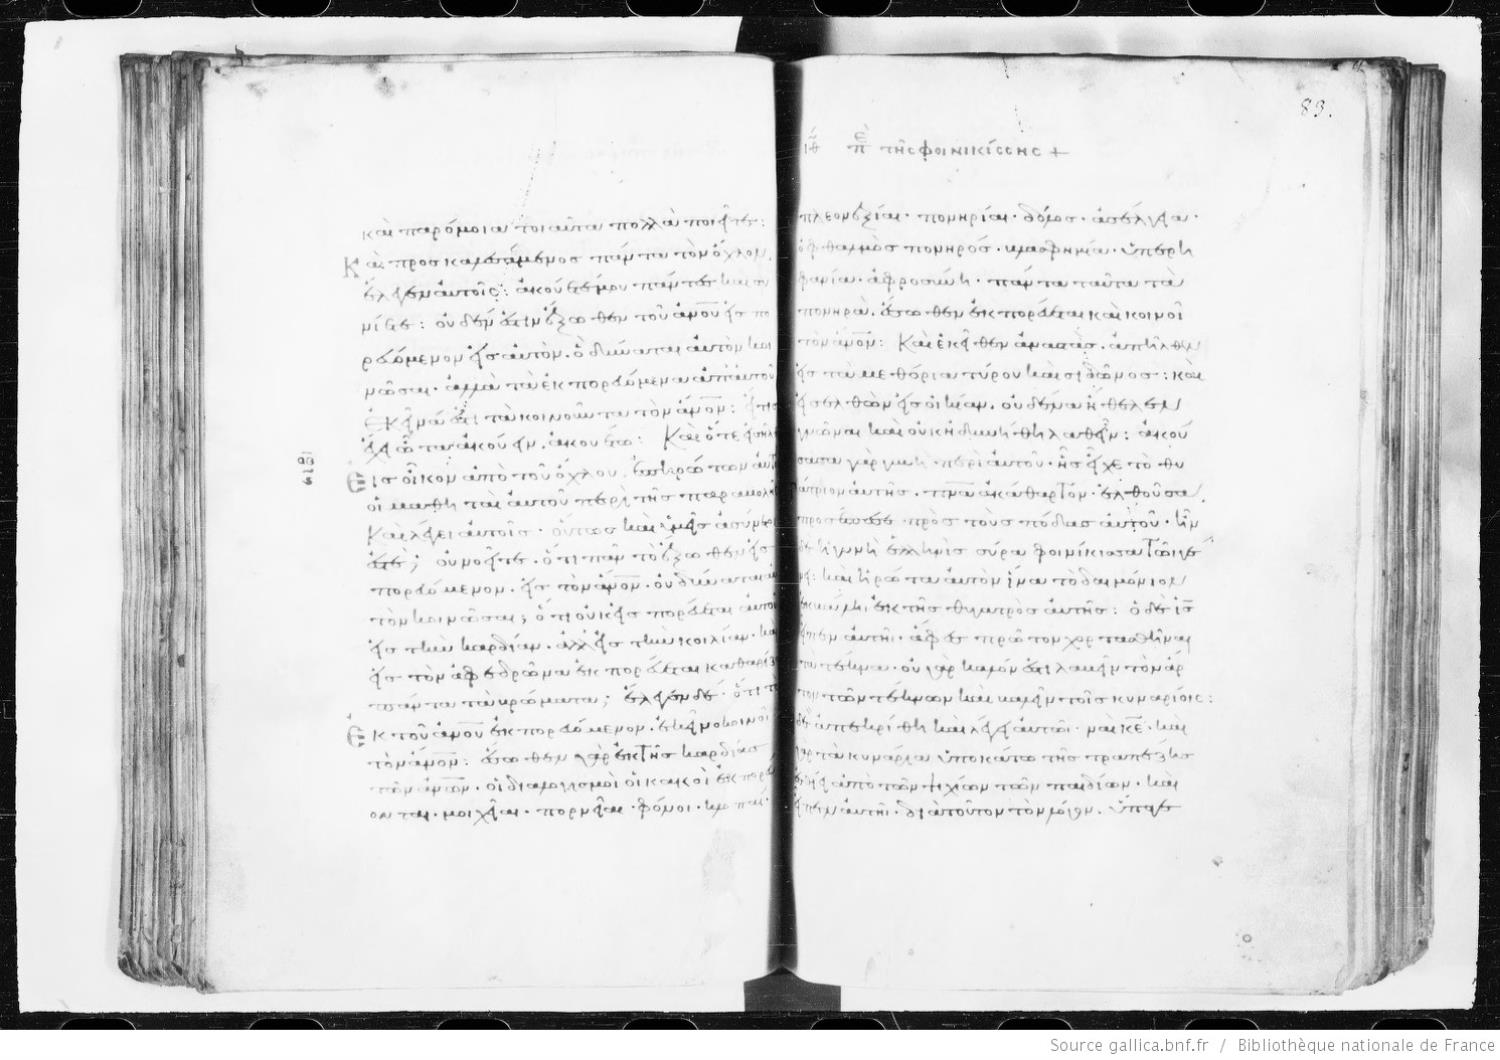 καὶ παρόμοια τοιαῦτα πολλὰ ποιεῖτε:
Καὶ προσκαλεσάμενος πάντα τὸν ὄχλον.
ἔλεγεν αὐτοῖς: ἀκούετέ μου πάντες καὶ συ
νίετε: οὐδέν ἐστιν ἔξωθεν τοῦ ἀνου εἰσπο
ρευόμενον εἰς αὐτὸν. ὃ δύναται αὐτὸν κοι
νῶσαι. ἀλλὰ τὰ ἐκπορευόμενα ἀπ' αὐτοῦ
ἐκεῖνά ἐστι τὰ κοινοῦντα τὸν ἀνον: εἴ τις
ἔχει ὦτα ἀκούειν. ἀκουέτω: Καὶ ὅτε εἰσῆλ
εἰς οἶκον ἀπὸ τοῦ ὄχλου. ἐπηρώτων αὐτ
οἱ μαθηταὶ αὐτοῦ περὶ τῆς παραβολῆς
Καὶ λέγει αὐτοῖς. οὕτως καὶ ὑμεῖς ἀσύνετοι
ἐστέ; οὐ νοεῖτε. ὅτι πᾶν τὸ ἔξωθεν εἰσ
πορευόμενον. εἰς τὸν ἀνον. οὐ δύναται αὐ
τὸν κοινῶσαι; ὅτι οὐκ εἰσπορεύεται αὐτοῦ
εἰς τὴν καρδίαν. ἀλλ' εἰς τὴν κοιλίαν. καὶ
εἰς τὸν ἀφεδρῶνα ἐκπορεύεται καθαρίζ
πάντα τὰ βρώματα; ἔλεγεν δὲ. ὅτι τὸ
ἐκ τοῦ ἀνου ἐκπορευόμενον. ἐκεῖνο κοινοῖ
τὸν ἀνον: ἔσωθεν γὰρ ἐκ τῆς καρδίας
τῶν ἀνων. οἱ διαλογισμοὶ οἱ κακοὶ ἐκπορεύ
ονται. μοιχεῖαι. πορνεῖαι. φόνοι. κλοπαί.
83.
τῆς φοινικίσσης +
πλεονεξίαι. πονηρίαι. δόλος. ἀσέλγεια.
ὀφθαλμὸς πονηρός. βλασφημία. ὑπερη
φανία. ἀφροσύνη. πάντα ταῦτα τὰ
πονηρὰ. ἔσωθεν ἐκπορεύεται καὶ κοινοῖ
τὸν ἀνον: Καὶ ἐκεῖθεν ἀναστὰς. ἀπῆλθεν
εἰς τὰ μεθόρια τύρου καὶ σιδῶνος: καὶ
εἰσελθὼν εἰς οἰκίαν. οὐδένα ἤθελεν
γνῶναι καὶ οὐκ ἠδυνήθη λαθεῖν: ἀκού
σασα γὰρ γυνὴ περὶ αὐτοῦ. ἧς εἶχε τὸ θυ
γάτριον αὐτῆς. πνα ἀκάθαρτον. ἐλθοῦσα.
προσέπεσε πρὸς τοὺς πόδας αὐτοῦ. ἦν
δὲ ἡ γυνὴ ἑλληνὶς σύρα φοινίκισσα τῶ γέ
νει: καὶ ἠρώτα αὐτὸν ἵνα τὸ δαιμόνιον
ἐκβάλη ἐκ τῆς θυγατρὸς αὐτῆς: ὁ δὲ ις
εἶπεν αὐτῆι. ἄφες πρῶτον χορτασθῆναι
τὰ τέκνα. οὐ γὰρ καλόν ἐστι λαβεῖν τὸν ἄρ
τον τῶν τέκνων καὶ βαλεῖν τοῖς κυναρίοις:
δὲ ἀπεκρίθη καὶ λέγει αὐτῶι. ναὶ κε. καὶ
γὰρ τὰ κυνάρια ὑποκάτω τῆς τραπέζης
ἐσθίει ἀπὸ τῶν ψιχίων τῶν παιδίων. καὶ
εἶπεν αὐτῆι. διὰ τοῦτον τὸν λόγον. ὕπαγε
Source gallica.bnf.fr / Bibliothèque nationale de France